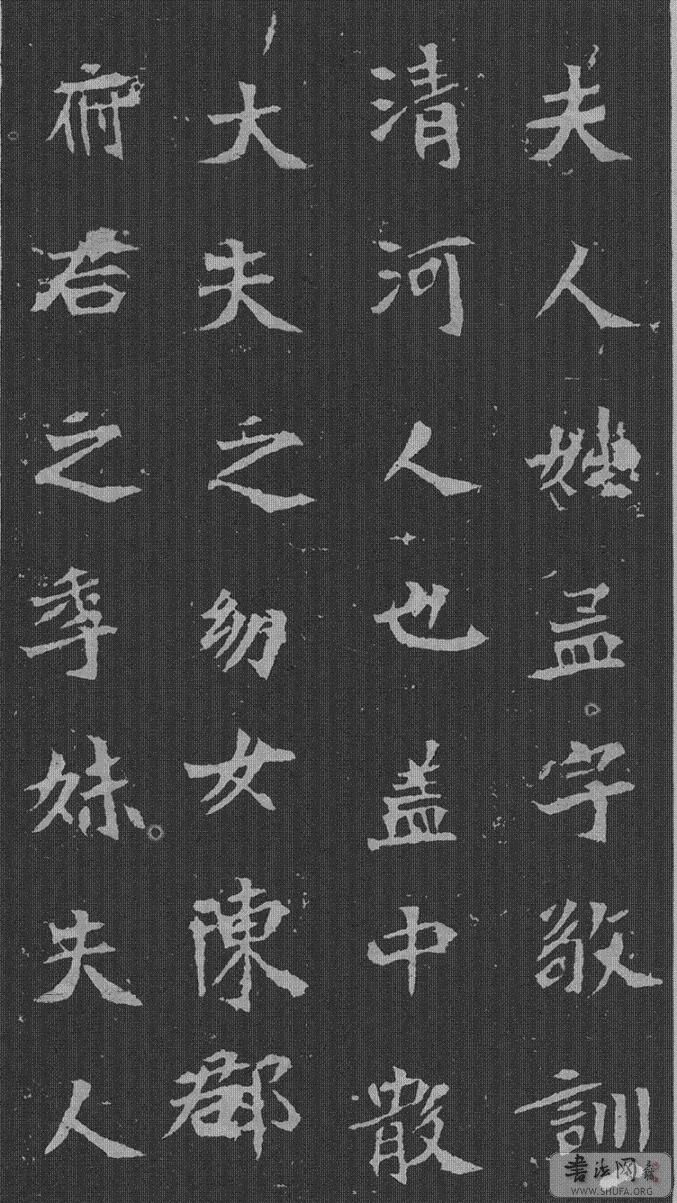 夫人姓孟字敬訓
清河人也盖中散
大夫之幼女陳郡
府君之季妹夫人
書法网
WWW.SHUFA.ORG